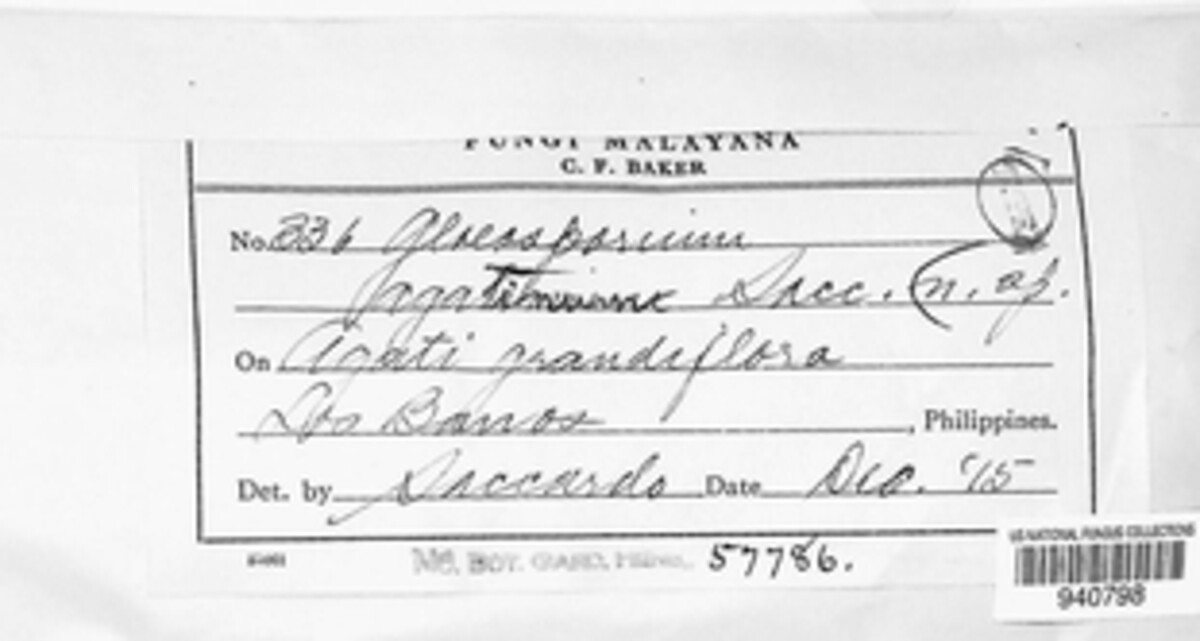 FUNGI MALAYANA
C. F. BAKER
No. 336 Gloeosporium
Sacc. (n. sp.
On Agati grandiflora
Los Banos, Philippines.
Det. by Saccardo Date Dec. '15
MO. BOT. GARD. HERB. 57786.
US NATIONAL FUNGUS COLLECTIONS
940798